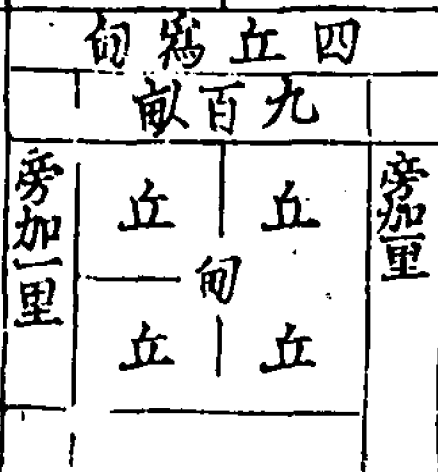 四丘爲甸
九百畝
旁加一里
丘丘
甸
丘丘
旁加一里